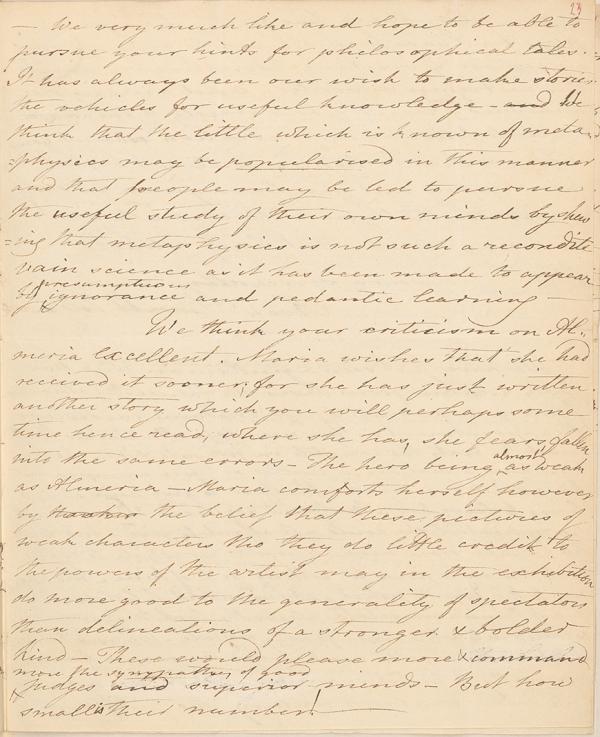 23
— We very much like and hope to be able to
pursue your hints for philosophical tales.
It has always been our wish to make stories
the vehicles for useful knowledge — and We
think that the little which is known of meta
=physics may be popularised in this manner
and that people may be led to pursue
the useful study of their own minds by shew
=ing that metaphysics is not such a recondite
vain science as it has been made to appear
presumptuous
by ignorance and pedantic learning —
We think your criticism on Al-
meria excellent. Maria wishes that she had
received it sooner; for she has just written
another story which you will perhaps some
time hence read, where she has, she fears, fallen
into the same errors — The hero being almost as weak
as Almeria — Maria comforts herself however
by the belief that these pictures of
weak characters tho they do little credit to
the powers of the artist may in the exhibition
do more good to the generality of spectators
than delineations of a stronger & bolder
kind — These would please more & command
more the sympathy of good
judges and superior minds — But how
small is their number!